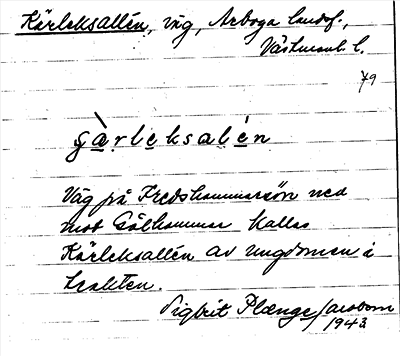 Kärleksallén, väg, Arboga landsf.,
Västmanl. l.
79
çà̱rleksalé̱n
Väg på Fredshammarsön ned
mot Gålhammar kallas
Kärleksallén av ungdomen i
trakten.
Sigbrit Plænge Jacobson
1943